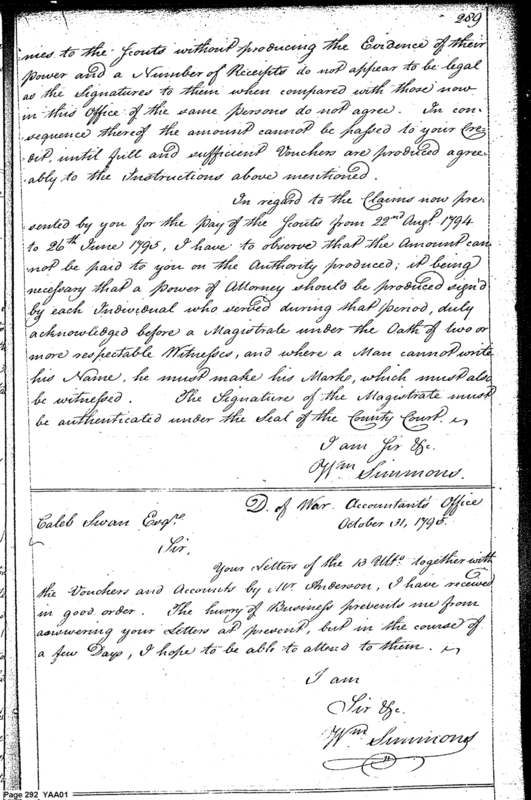 289
mies to the Scouts without producing the Evidence of their
power and a Number of Receipts do not appear to be legal
as the Signatures to them when compared with those now
in this Office of the same persons do not agree. In con-
sequence thereof the amount cannot be passed to your Cre-
dit, until full and sufficient Vouchers are produced agree-
ably to the Instructions above mentioned.
In regard to the Claims now pre-
sented by you for the Pay of the Scouts from 22nd Augt. 1794
to 26th June 1795, I have to observe that the Amount can
not be paid to you on the Authority produced; it being
necessary that a Power of Attorney should be produced sign'd
by each Individual who served during that period, duly
acknowledged before a Magistrate under the Oath of two or
more respectable Witnesses, and where a Man cannot write
his Name, he must make his Mark, which must also
be witnessed. The Signature of the Magistrate must
be authenticated under the Seal of the County Court.
I am Sir &c.
Wm Simmons.
D. of War. Accountant's Office
October 31, 1795.
Caleb Swan Esqr.
Sir,
Your Letters of the 13 Ulto. together with
the Vouchers and Accounts by Mr Anderson, I have received
in good order. The hurry of Business prevents me from
answering your Letters at present, but in the course of
a few Days, I hope to be able to attend to them.
I am
Sir &c.
Wm Simmons
Page 292 YAA01